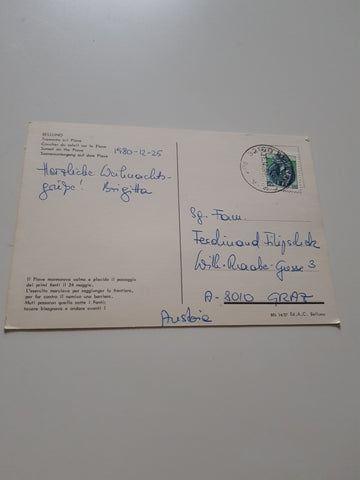 BELLUNO
Tramonto sul Piave
Coucher du soleil sur le Piave
Sunset on the Piave
Sonnenuntergang auf dem Piave
1980-12-25
Herzliche Weihnachts-
grüße! Brigitta
Sg. Fam.
Ferdinand
Gasse 3
A-8010 GRAZ
Austria
Il Piave mormorava calmo e placido il passaggio
dei primi fanti il 24 maggio.
L'esercito marciava per raggiunger la frontiera,
per far contro il nemico una barriera.
Muti passaron quella notte i fanti;
tacere bisognava e andare avanti !
Ed. A. C. Belluno